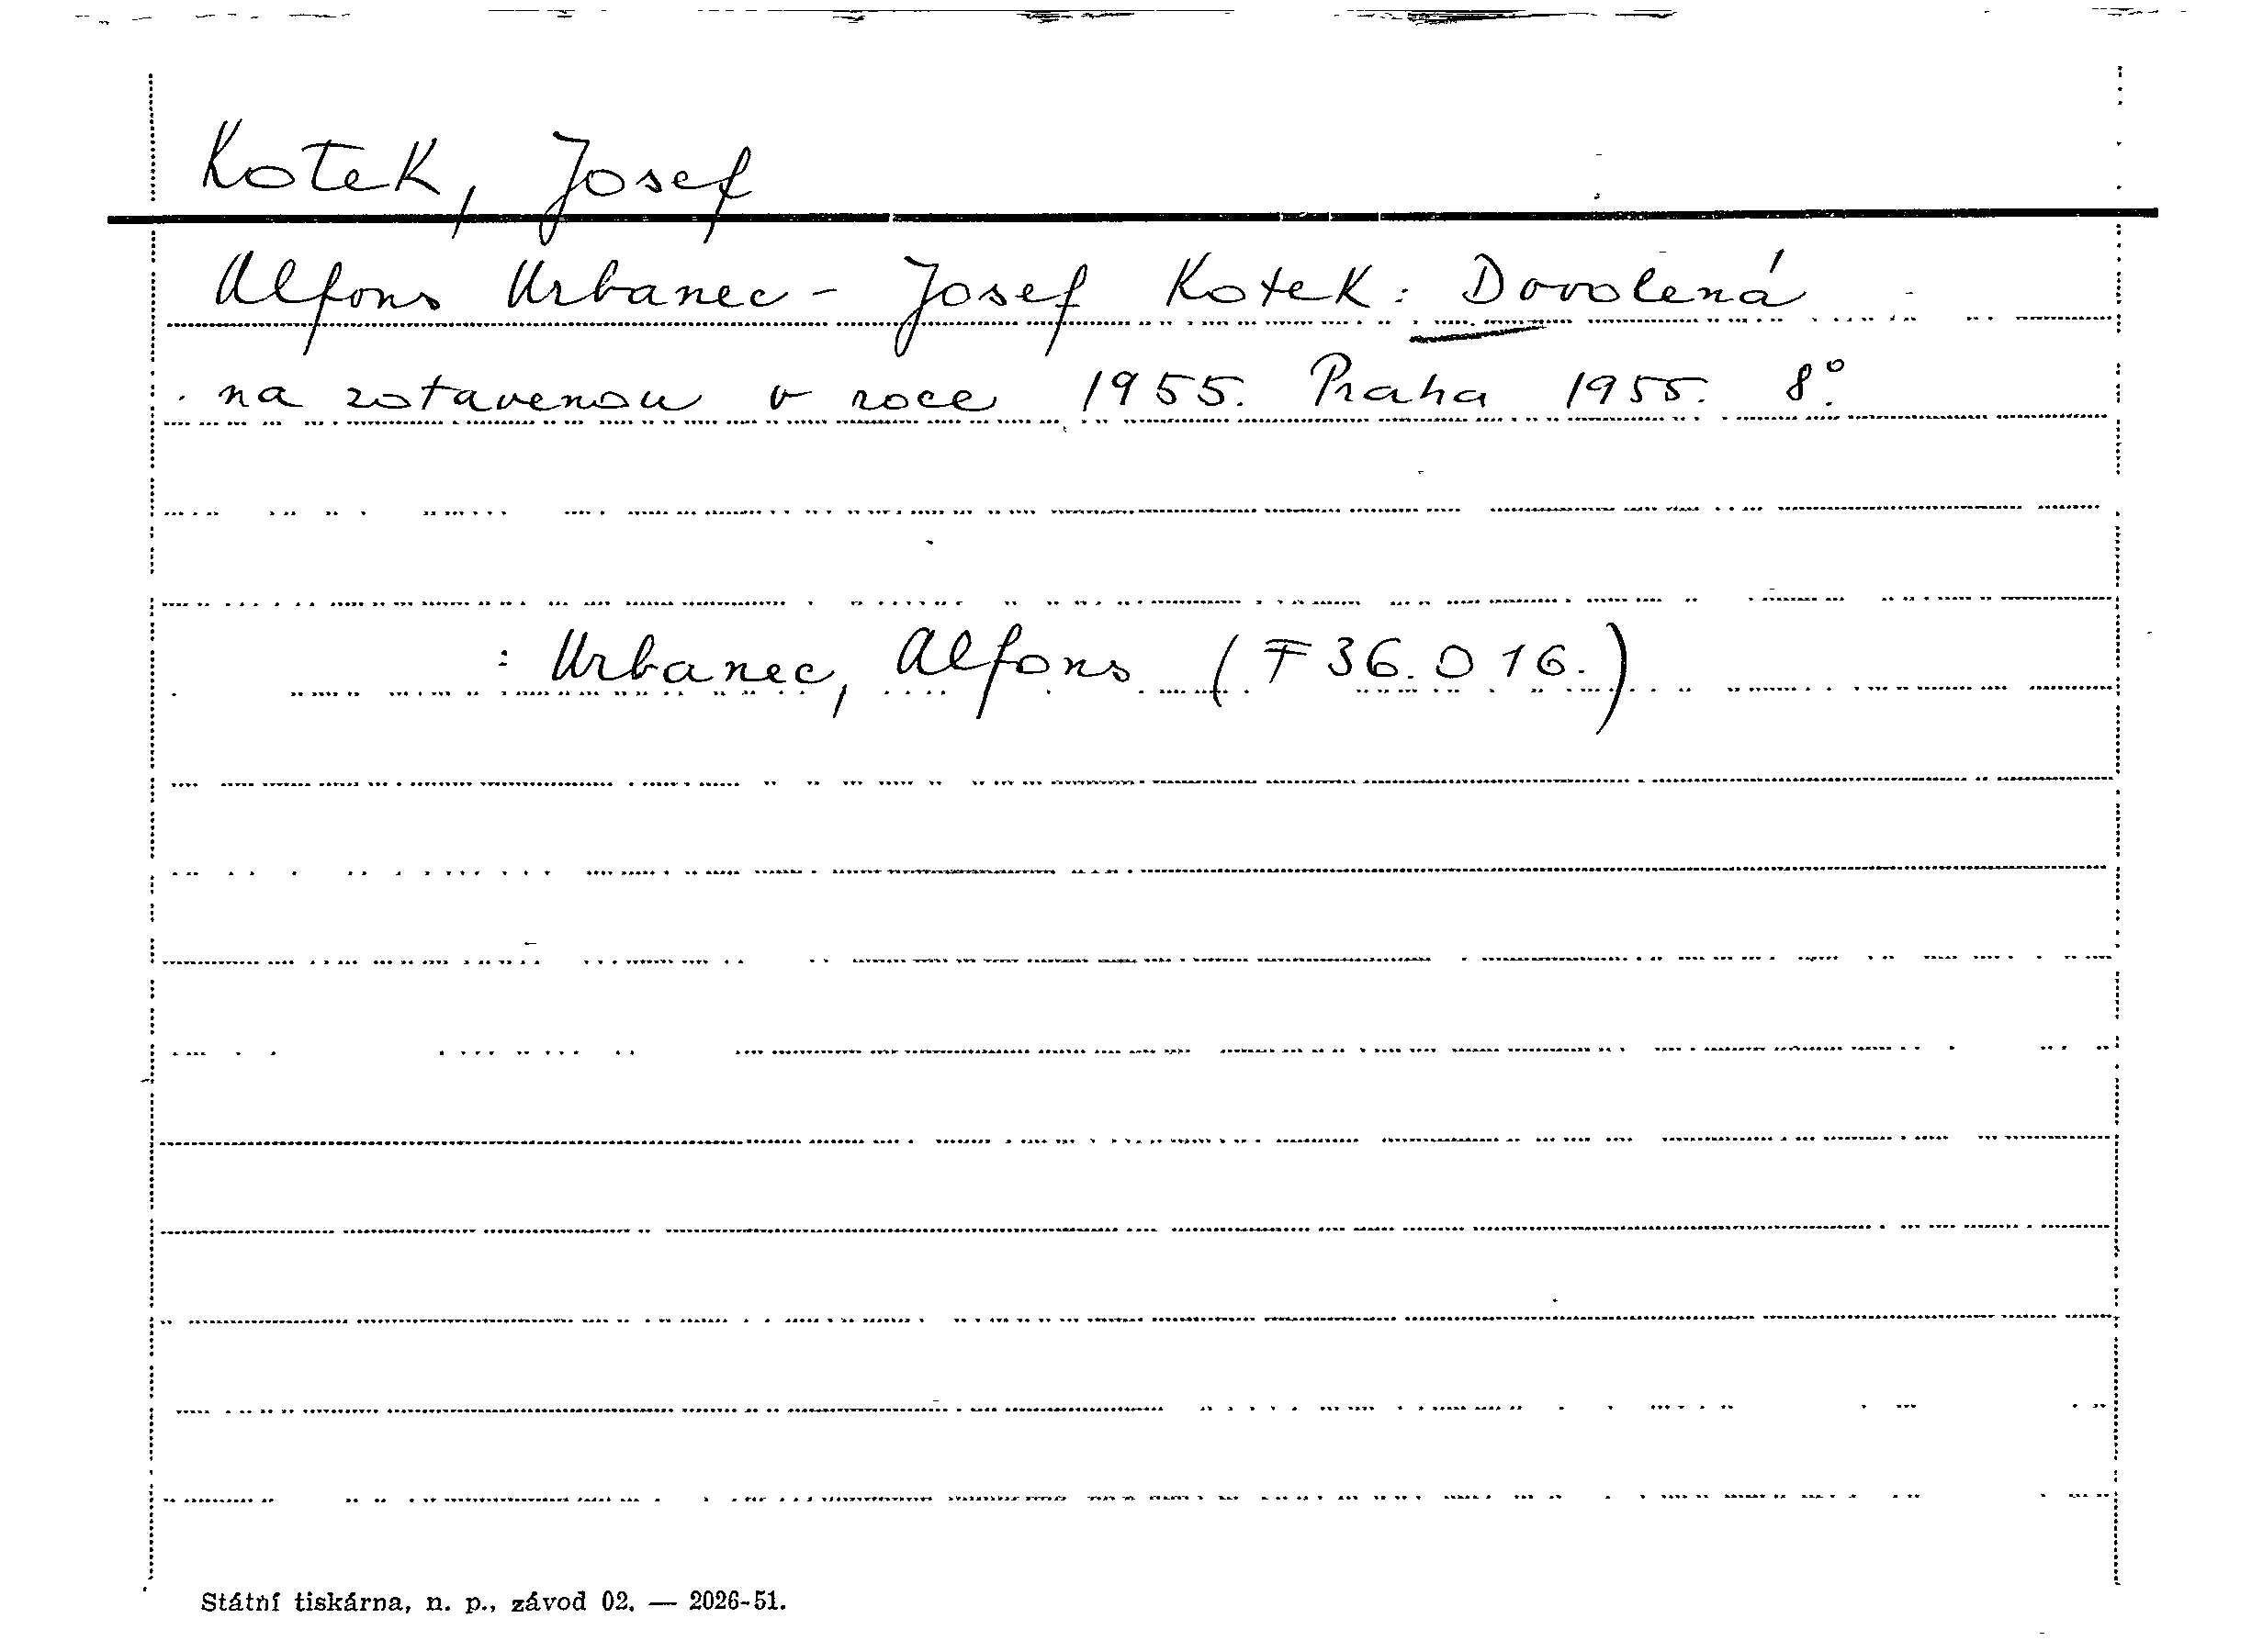 Kotek, Josef
Alfons Urbanec - Josef Kotek: Dovolená
na zotavenou v roce 1955. Praha 1955. 8°.
: Urbanec, Alfons (F 36.016.)
Státní tiskárna, n. p., závod 02. — 2026-51.